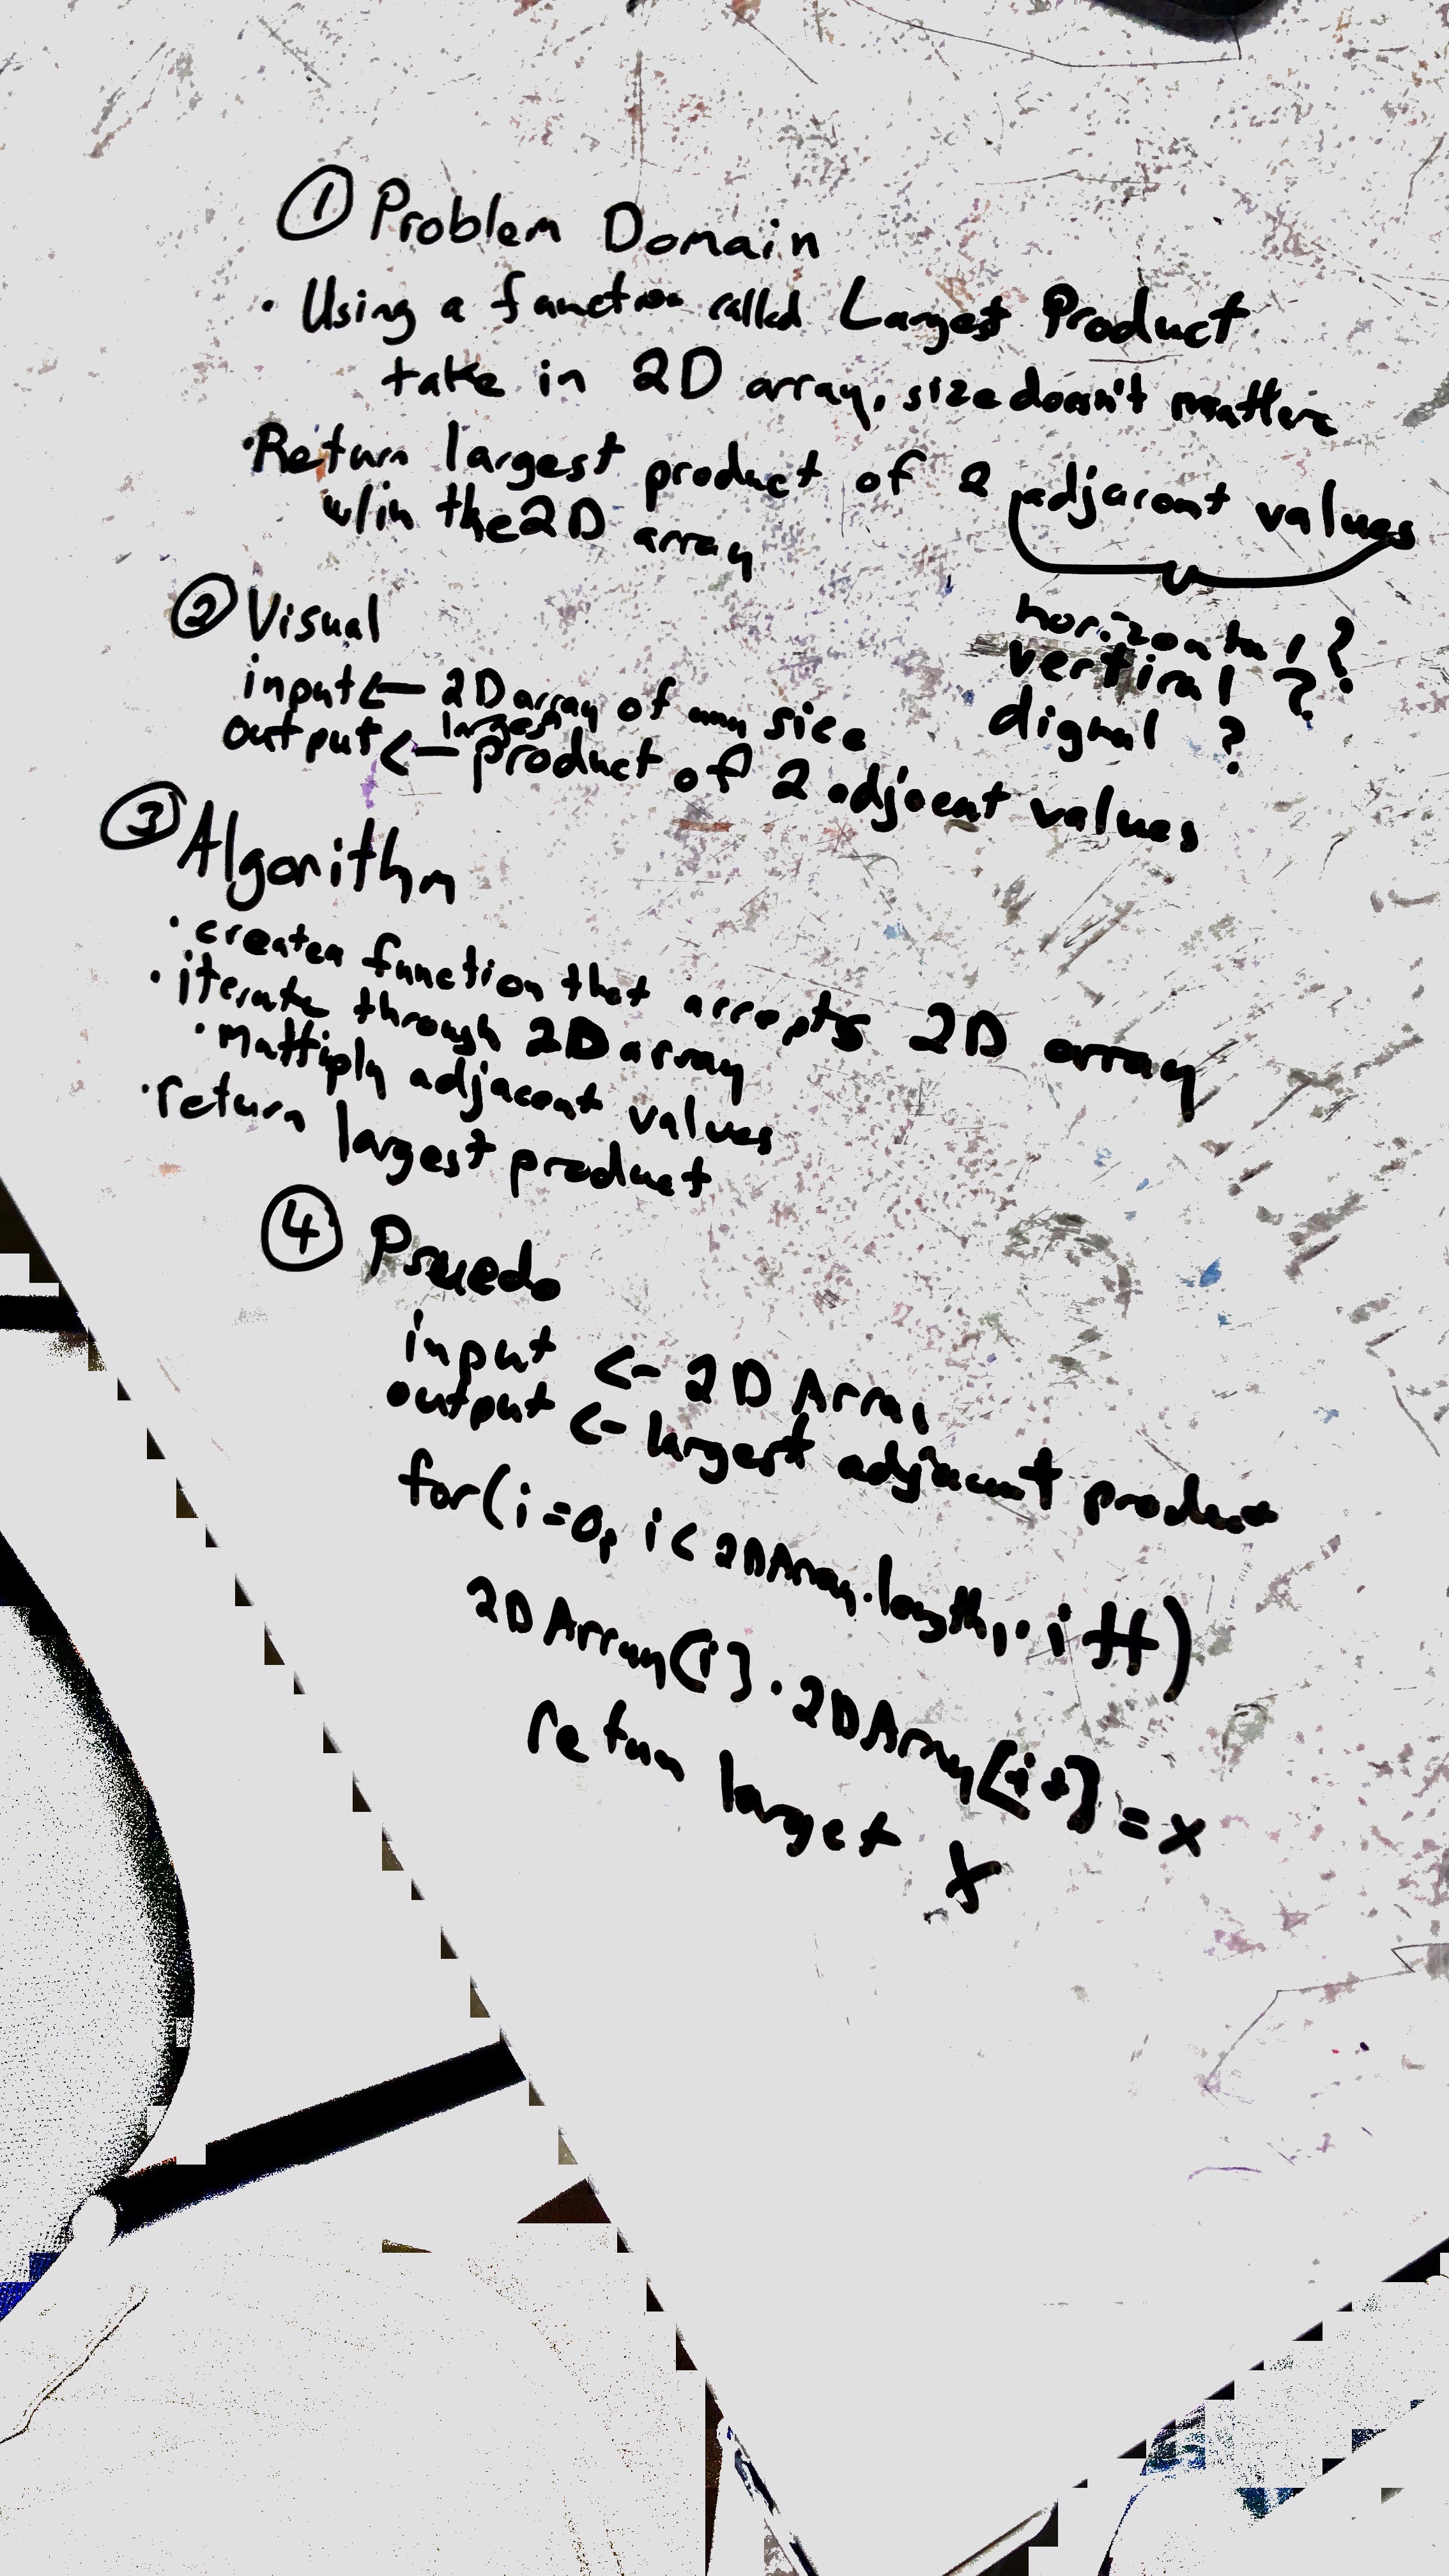 ① Problem Domain
· Using a function called Largest Product
take in 2D array, size doesn't matter
· Return largest product of 2 adjacent values
w/in the 2D array
horizontal ?
vertical ?
dignal ?
② Visual
input ← 2D array of any size
largest
output ← product of 2 adjacent values
③ Algorithm
· create a function that accepts 2D array
· iterate through 2D array
· Multiply adjacent values
· return largest product
④ Psuedo
input <- 2D Array
output <- largest adjacent product
for(i=0, i< 2DArray.length, i++)
2DArray[i] · 2DArray[i+] = x
return larget x